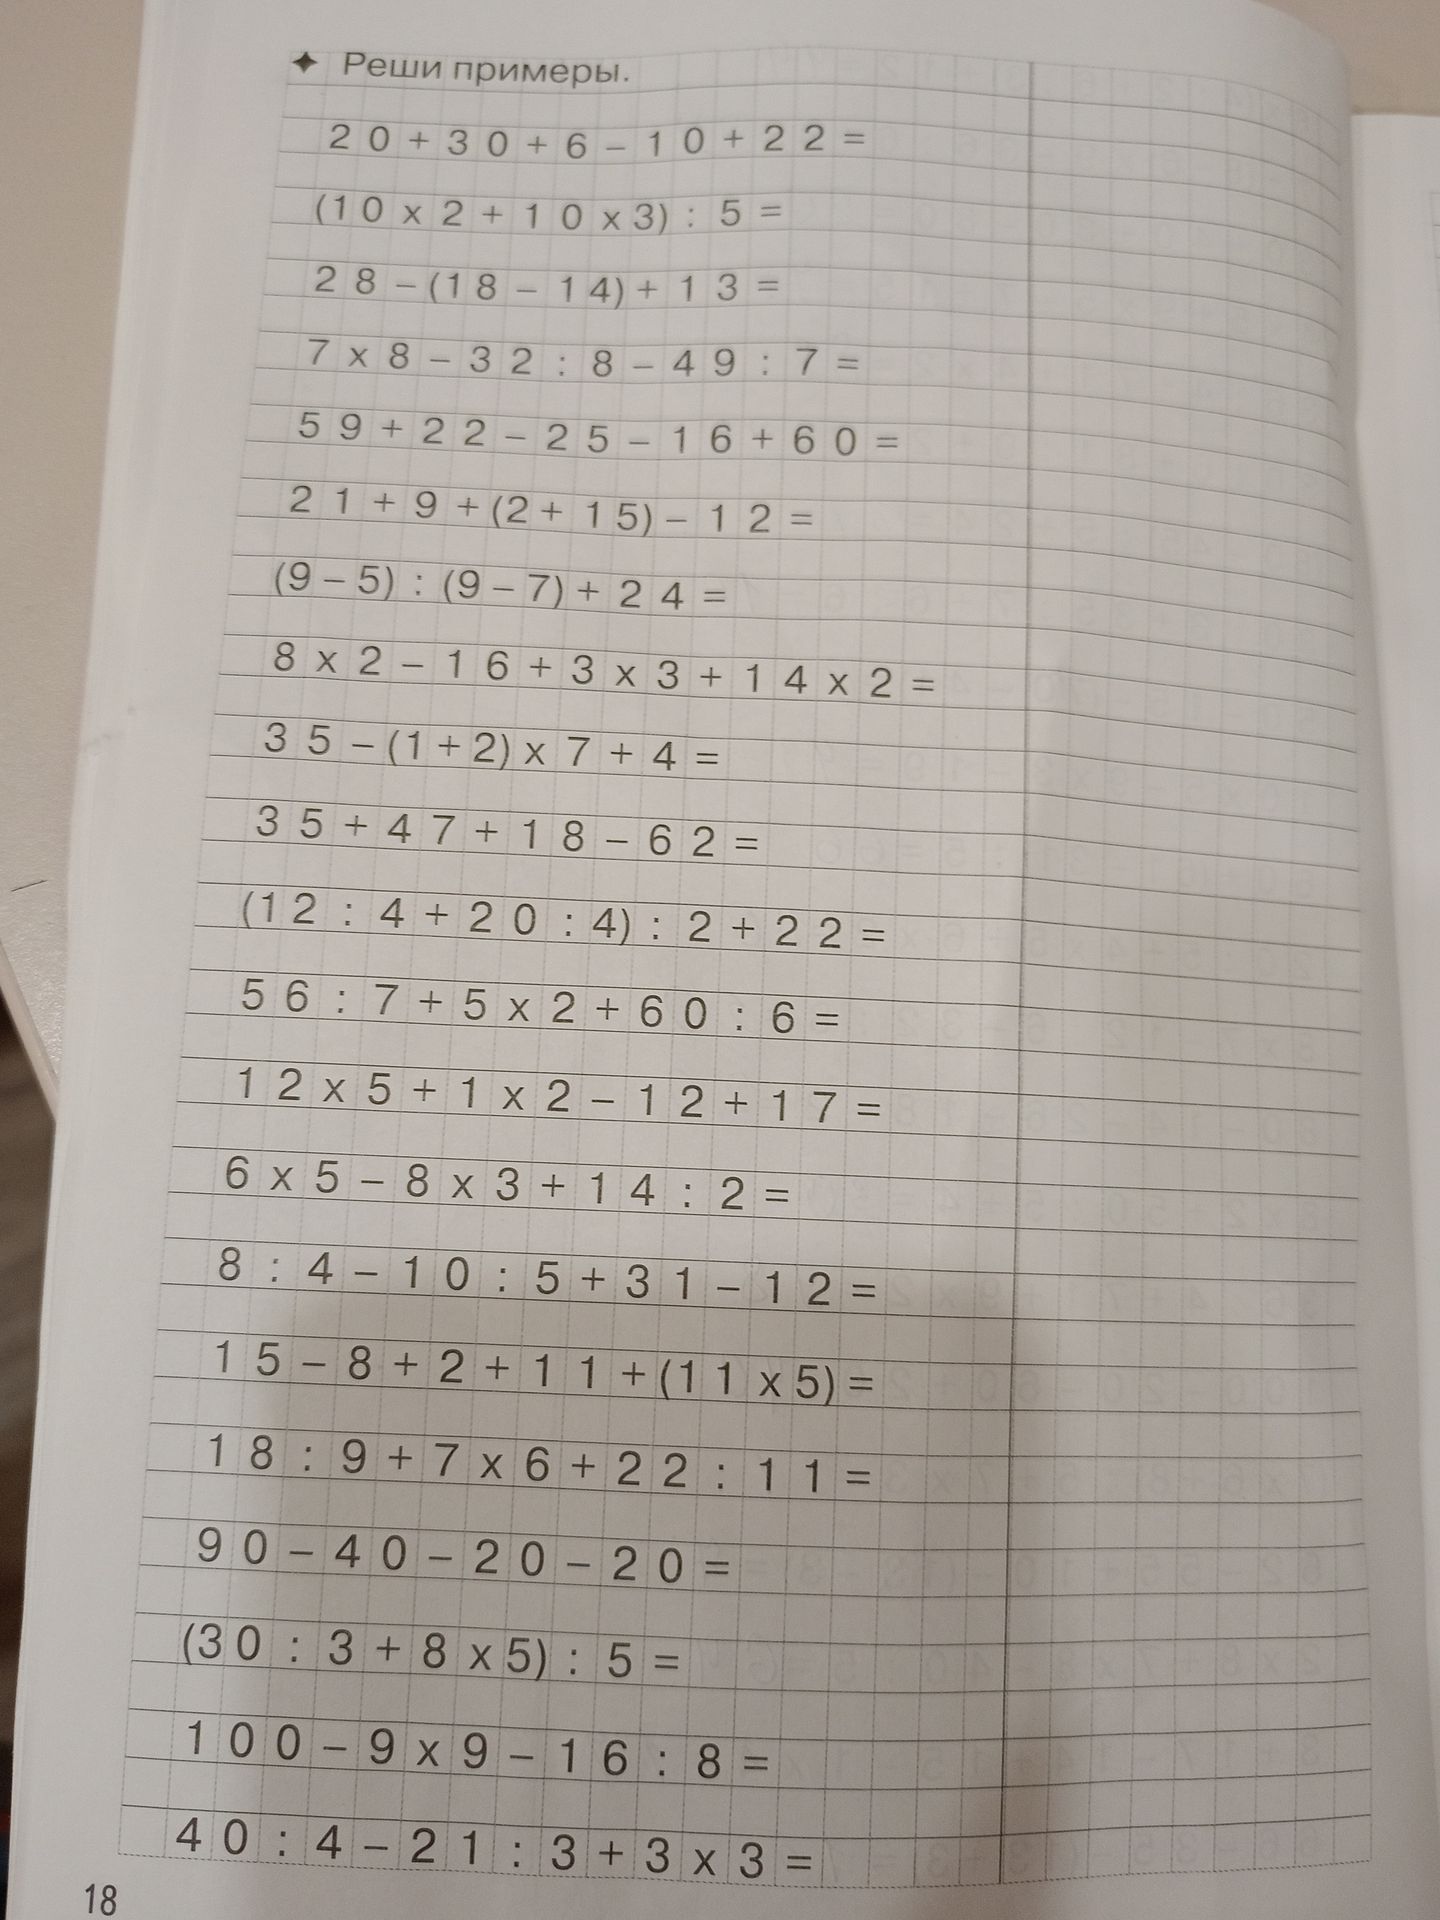 ✦ Реши примеры.
20+30+6–10+22=
(10x2+10x3):5=
28–(18–14)+13=
7x8–32:8–49:7=
59+22–25–16+60=
21+9+(2+15)–12=
(9–5):(9–7)+24=
8x2–16+3x3+14x2=
35–(1+2)x7+4=
35+47+18–62=
(12:4+20:4):2+22=
56:7+5x2+60:6=
12x5+1x2–12+17=
6x5–8x3+14:2=
8:4–10:5+31–12=
15–8+2+11+(11x5)=
18:9+7x6+22:11=
90–40–20–20=
(30:3+8x5):5=
100–9x9–16:8=
40:4–21:3+3x3=
18